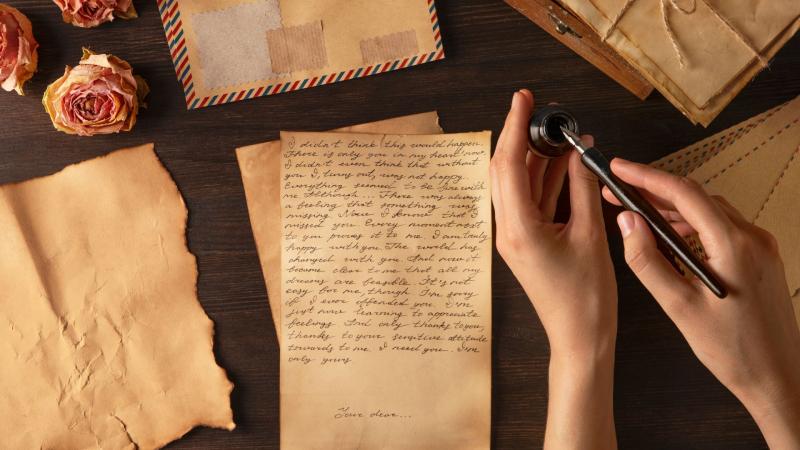 I didn't think this would happen.
There is only you in my heart now.
I didn't even think that without
you I, turns out, was not happy.
Everything seemed to be fine with
me Although... There was always
a feeling that something was
missing. Now I know that I
missed you. Every moment next
to you proves it to me. I am truly
happy with you. The world has
changed with you. And now it
became clear to me that all my
dreams are feasible. It's not
easy for me, though I'm sorry
if I ever offended you. I'm
just now learning to appreciate
feelings And only thanks to you,
thanks to your sensitive attitude
towards to me. I need you. I'm
only yours.
Your dear...